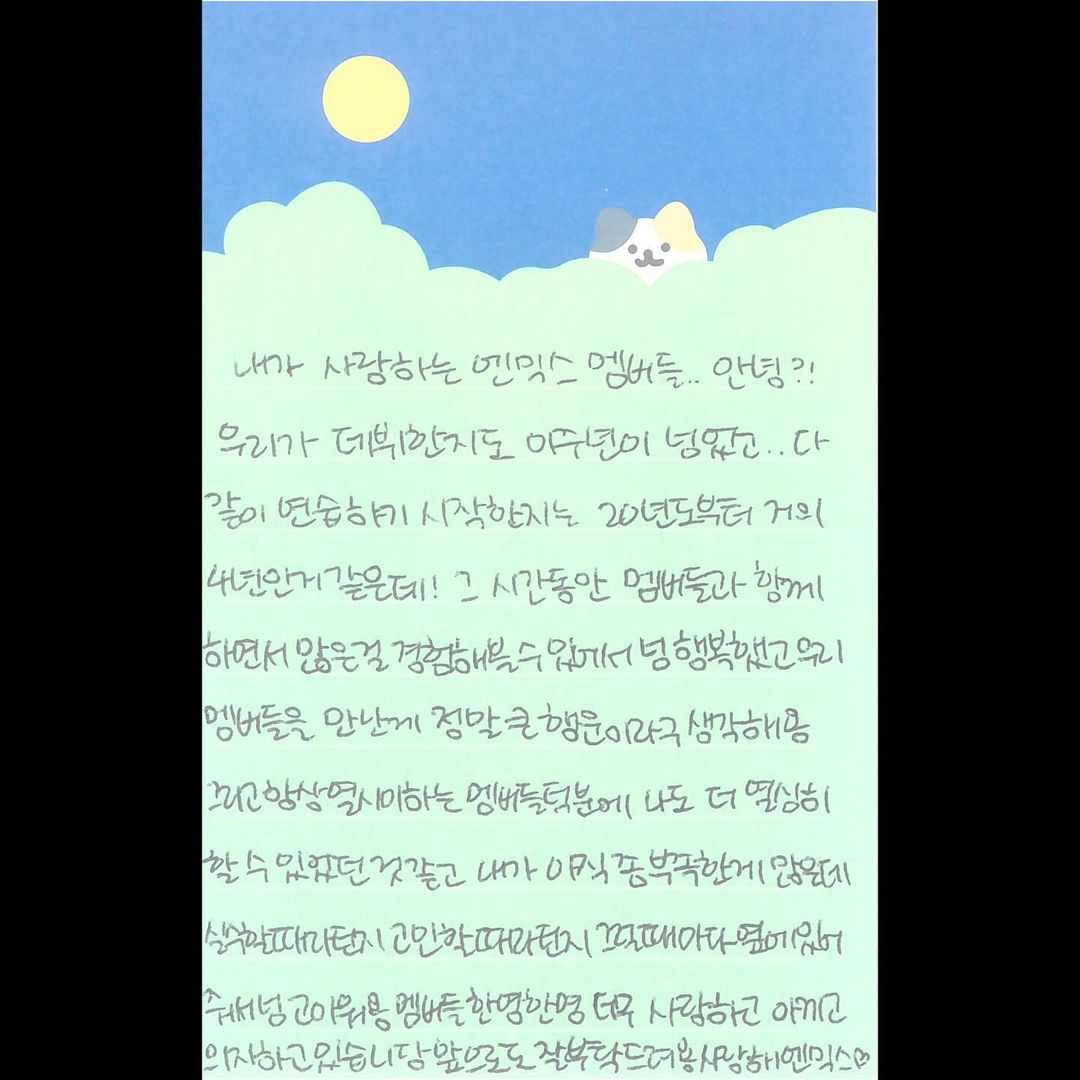 내가 사랑하는 엔믹스 멤버들.. 안녕?!
우리가 데뷔한지도 이주년이 넘었고..다
같이 연습하기 시작한지는 20년도부터 거의
4년안거 같은데! 그 시간동안 멤버들과 함께
하면서 많은걸 경험해볼 수 있에서 넘 행복했고 우리
멤버들을 만난게 정말 큰 행운이라구 생각해용
그리고 항상 열시미하는 멤버들덕분에 나도 더 열심히
할 수 있었던 것 같고 내가 아직 좀 부족한게 많은데
실수할때라던지 고민할때라던지 그럴때마다 옆에 있어
줘서 넘 고마워용 멤버들 한명한명 너무 사랑하고 아끼고
의지하고있습니당 앞으로도 잘부탁드려용 사랑해 엔믹스♡